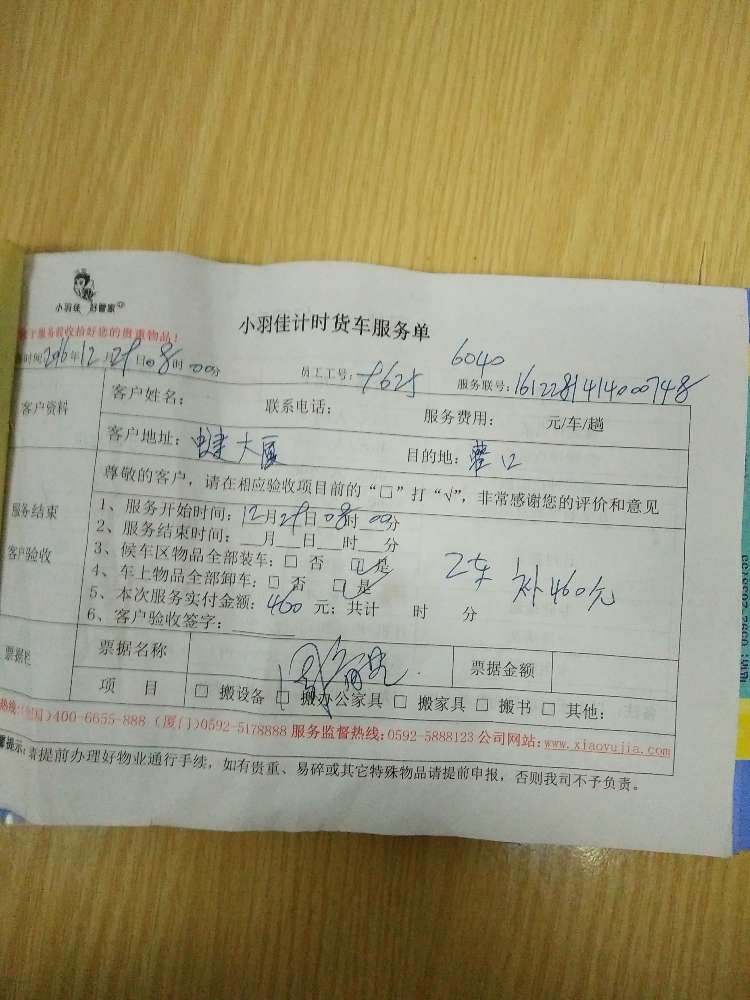 小羽佳 好管家
小羽佳计时货车服务单
服务验收拾好您的贵重物品！
时间2016年12月29日08时00分
员工工号：9625
6040
服务联号：1612281414000748
客户资料
客户姓名： 联系电话： 服务费用： 元/车/趟
客户地址： 大厦 目的地：
尊敬的客户，请在相应验收项目前的“□”打“√”，非常感谢您的评价和意见
服务结束
客户验收
1、服务开始时间：12月29日08时00分
2、服务结束时间：__月__日__时__分
3、候车区物品全部装车：□ 否 □ 是
4、车上物品全部卸车：□ 否 □ 是
2车 补460元
5、本次服务实付金额：460 元；共计 时 分
6、客户验收签字：
票据栏
票据名称 票据金额
项 目 □ 搬设备 □ 搬办公家具 □ 搬家具 □ 搬书 □ 其他：
热线：(全国)400-6655-888 (厦门)0592-5178888 服务监督热线：0592-5888123 公司网站：www.xiaoyujia.com
提示：请提前办理好物业通行手续，如有贵重、易碎或其它特殊物品请提前申报，否则我司不予负责。